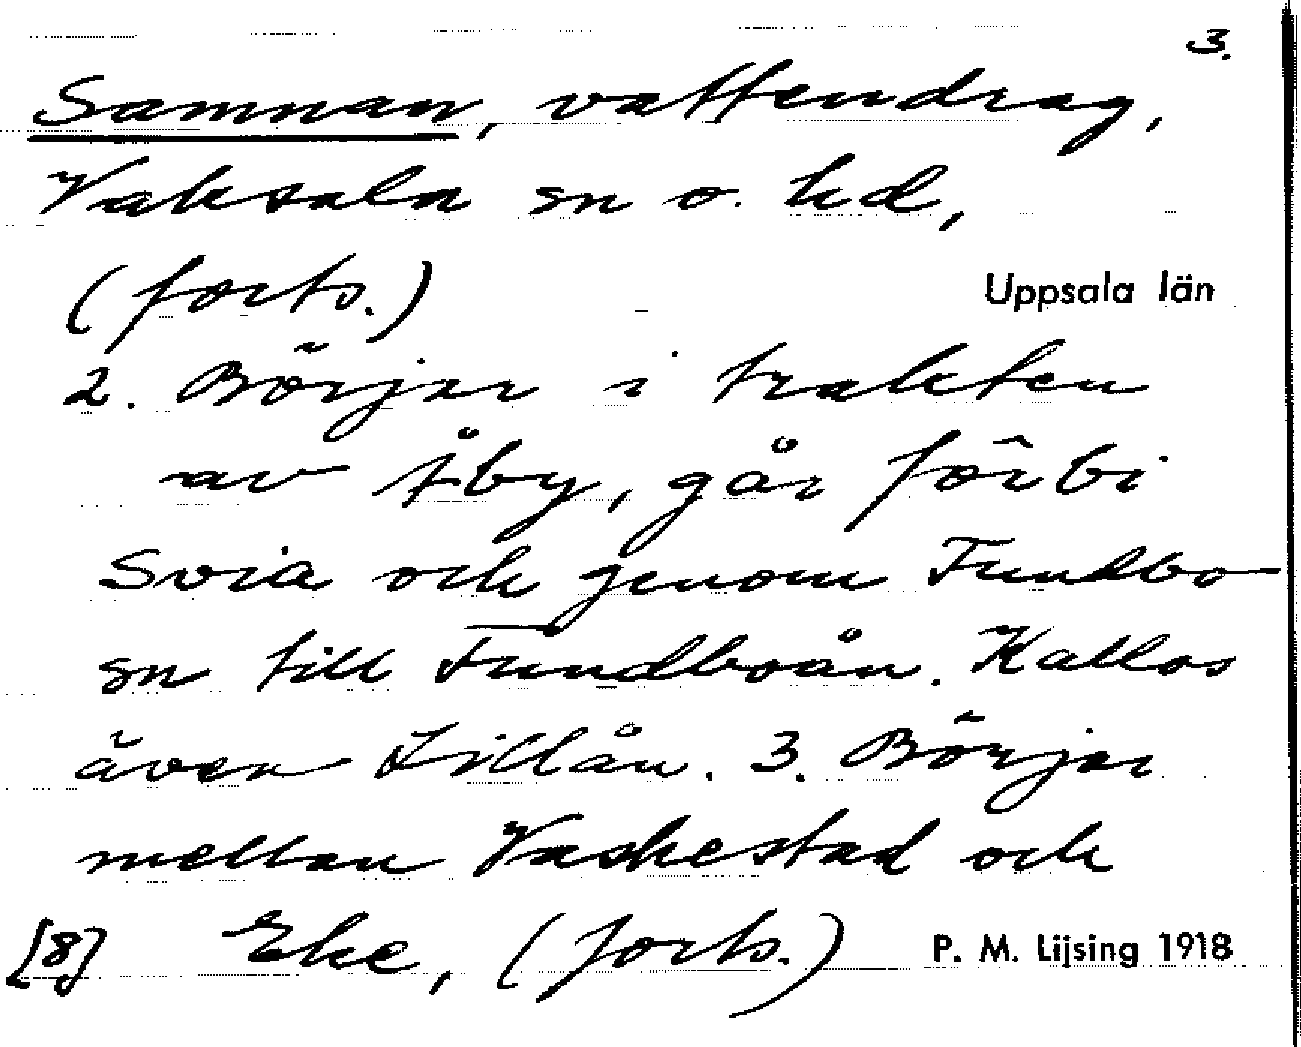 3.
Samnan, vattendrag,
Vaksala sn o. hd,
(forts.)
Uppsala län
2. Börjar i trakten
av Åby, går förbi
Svia och genom Funbo
sn till Funboån. Kallas
även Lillån. 3. Börjar
mellan Vaskestad och
[8] Eke, (forts.)
P. M. Lijsing 1918